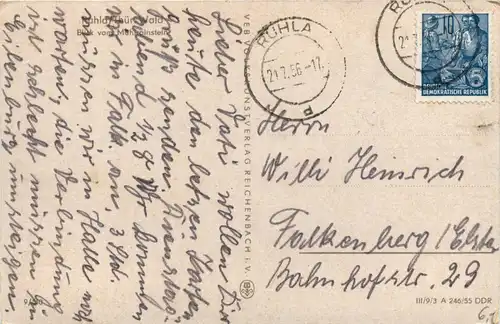 Ruhla/Thür. Wald
Blick vom Mühlrainstein
Lieber Vati wollen Dir
heute den letzten Karten
gruß senden, Dienstag
abend 1/2 8 Uhr kommen
wir in Falk. an. 3 Std.
müssen wir in Halle
warten, die Verbindung
ist schlecht müssen in
Eilenburg umsteigen.
VEB VOLKSKUNSTVERLAG REICHENBACH i. V.
RUHLA
21.7.56-17
RUHLA
21.7.56
10
DEUTSCHE
DEMOKRATISCHE REPUBLIK
5
Herrn
Willi Heinrich
Falkenberg/Elster
Bahnhofstr. 29
III/9/3 A 246/55 DDR